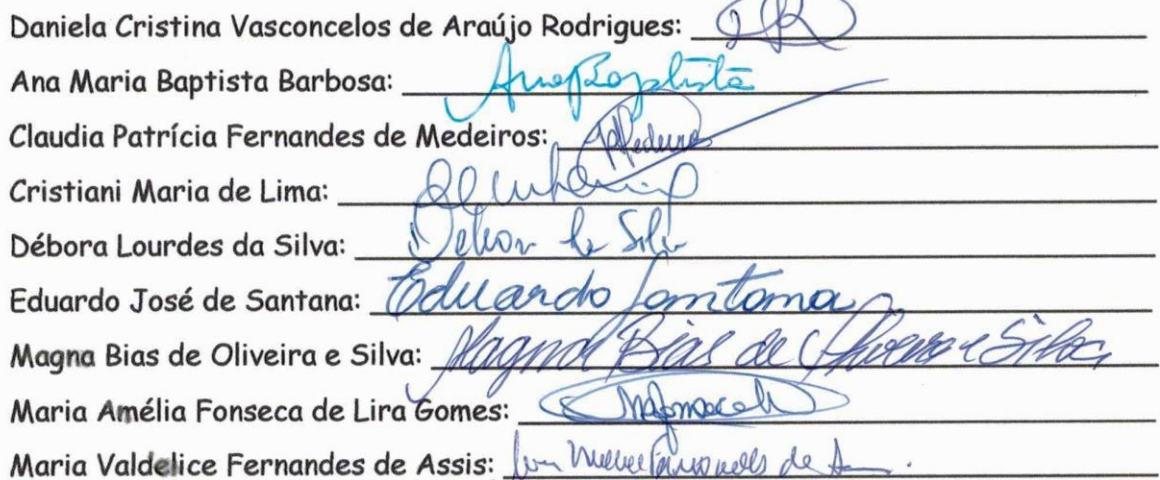 Daniela Cristina Vasconcelos de Araújo Rodrigues:
Ana Maria Baptista Barbosa: Ana Baptista
Claudia Patrícia Fernandes de Medeiros: Medeiros
Cristiani Maria de Lima:
Débora Lourdes da Silva: Débora da Silva
Eduardo José de Santana: Eduardo Santana
Magna Bias de Oliveira e Silva: Magna Bias de Oliveira e Silva
Maria Amélia Fonseca de Lira Gomes:
Maria Valdelice Fernandes de Assis: